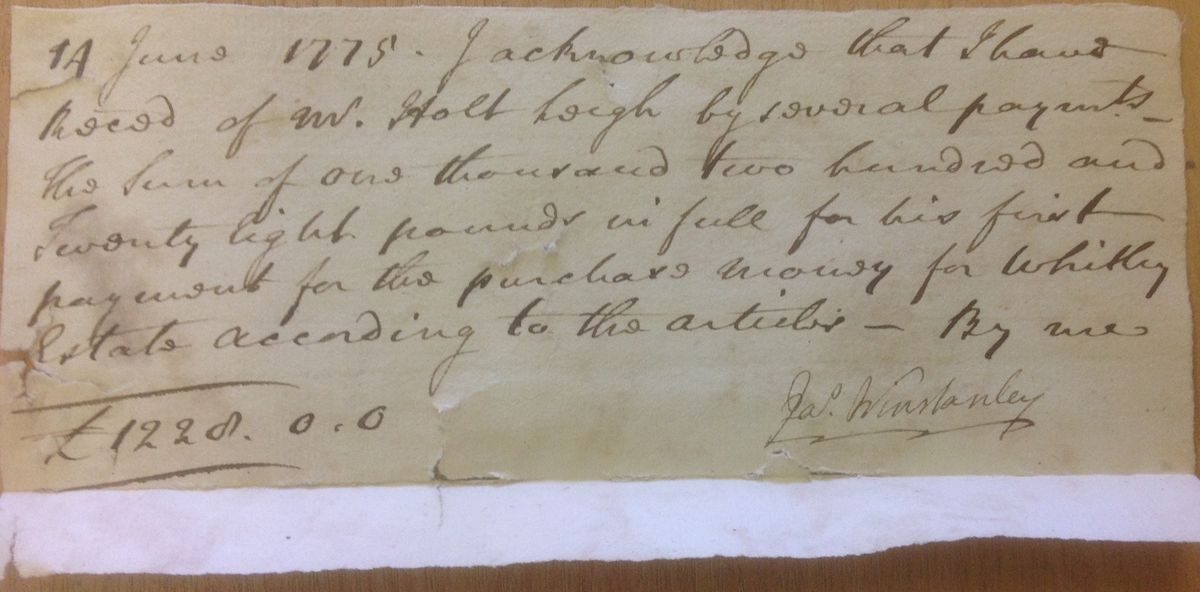 14 June 1775. I acknowledge that I have
Reced of Mr. Holt Leigh by several paymts. –
the Sum of one thousand two hundred and
Twenty Eight pounds in full for his first
payment for the purchase money for Whitley
Estate according to the articles – By me
£1228. 0. 0
Jas. Winstanley